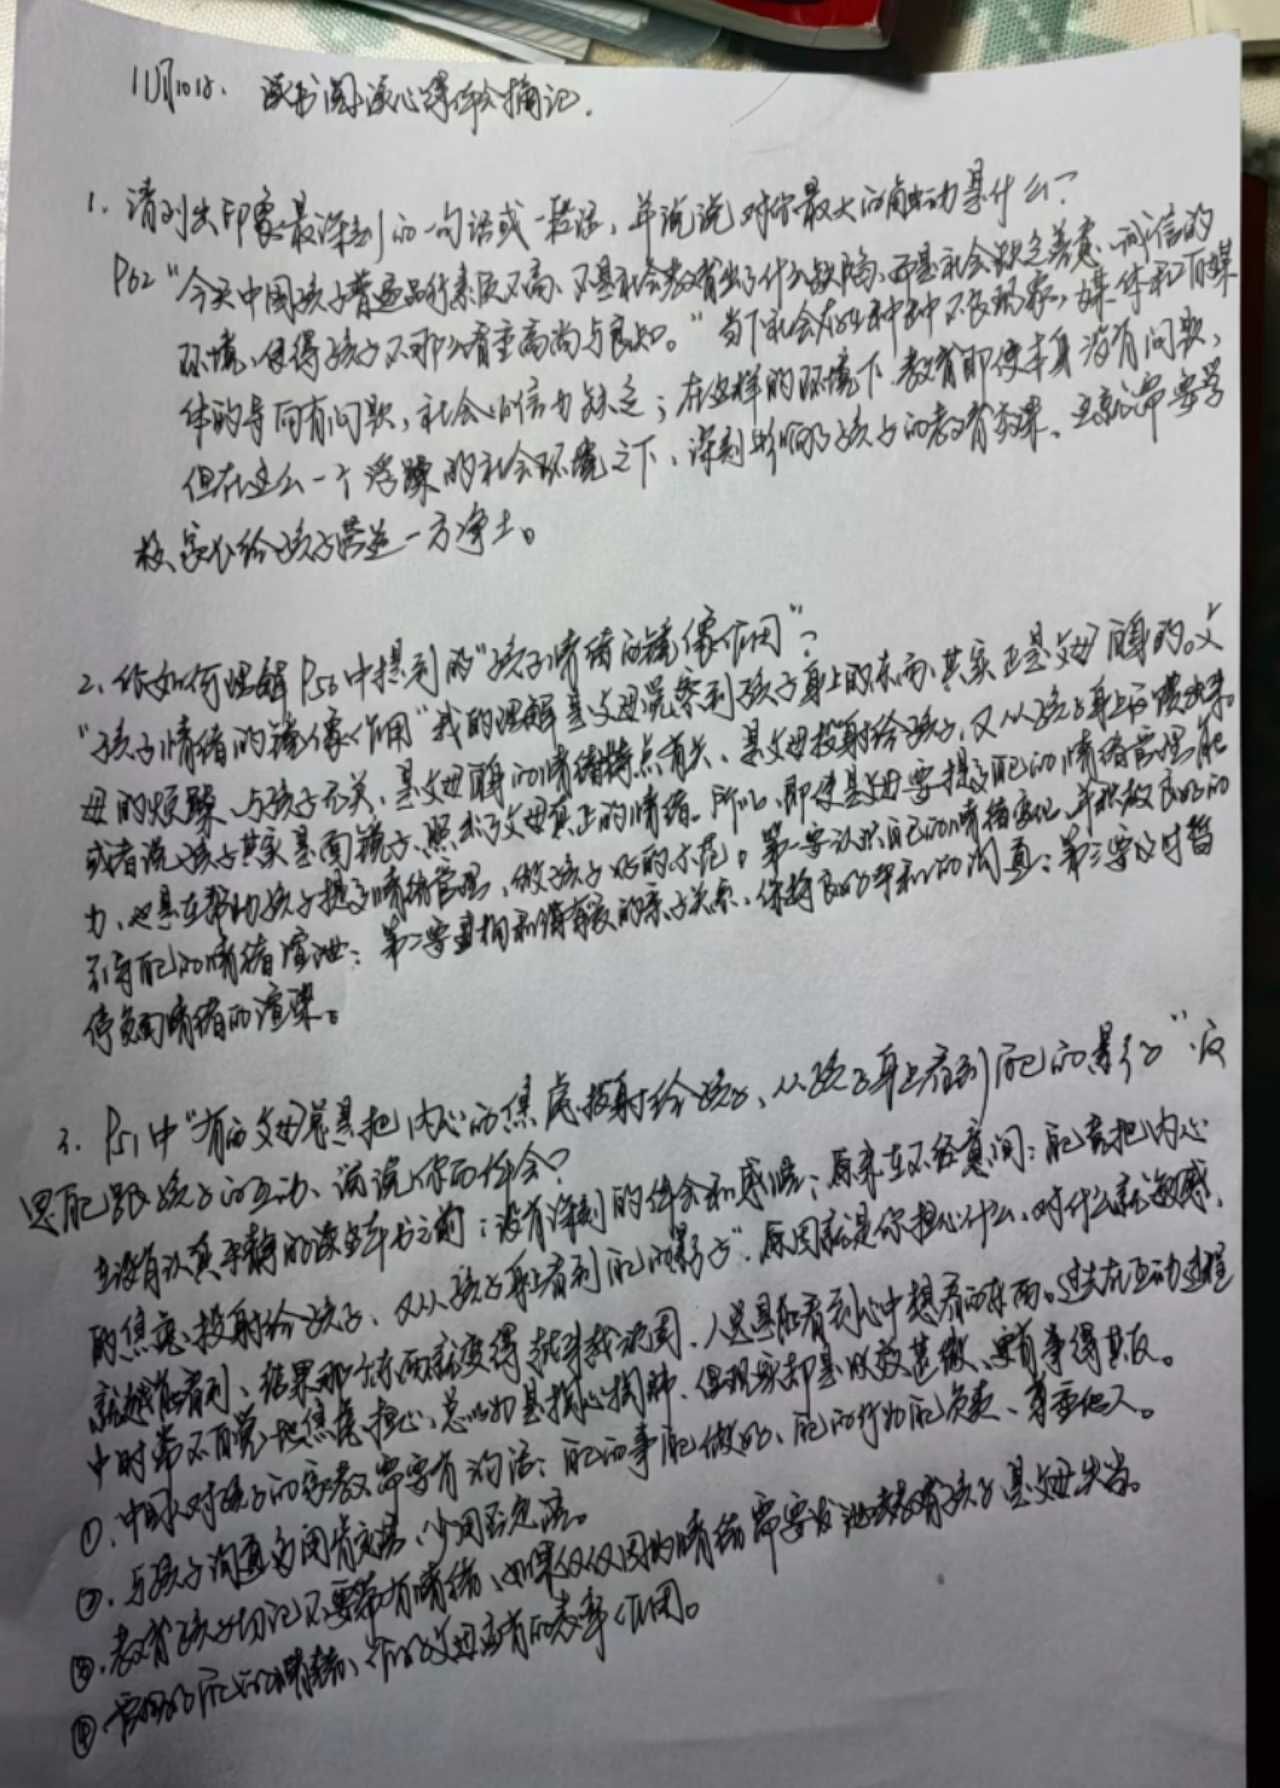 11月10日、读书阅读心得体会摘记.
1、请列出印象最深刻的一句话或一段话，并说说对你最大的触动是什么？
P62“今天中国孩子普遍品行素质不高、不是社会教育出了什么缺陷、而是社会缺乏善意、诚信的
环境、使得孩子不那么看重高尚与良知。”当下社会存在种种不良现象，媒体和自媒
体的导向有问题，社会公信力缺乏；在这样的环境下、教育即使本身没有问题，
但在这么一个浮躁的社会环境之下、深刻影响了孩子的教育效果、这就需要学
校、家长给孩子营造一方净土。
2、你如何理解P50中提到的“孩子情绪的镜像作用”？
“孩子情绪的镜像作用”我的理解是父母觉察到孩子身上的东西、其实正是父母自身的。父
母的烦躁、与孩子无关、是父母自身的情绪特点有关、是父母投射给孩子、又从孩子身上反馈出来。
或者说孩子其实是面镜子、照出了父母真正的情绪。所以、即使是父母要提高自己的情绪管理能
力、也是在帮助孩子提高情绪管理、做孩子好的示范。第一要认识自己的情绪变化、并积极良好的
引导自己的情绪宣泄；第二要建构和谐有爱的亲子关系、保持良好平和的沟通；第三要及时暂
停负面情绪的渲染。
3、P51中“有的父母总是把内心的焦虑投射给孩子、从孩子身上看到自己的影子”、反
思自己跟孩子的互动、谈谈你的体会？
在没有认真平静的读这本书之前；没有深刻的体会和感悟；原来在不经意间；自己竟把内心
的焦虑、投射给孩子、又从孩子身上看到自己的影子”、原因就是你担心什么、对什么就敏感、
就越能看到、结果那个东西就变得越来越顽固、人总是能看到心中想看的东西。过去在互动过程
中时常不自觉地焦虑担心、总以为是掏心掏肺、但现实却是收效甚微、更有事得其反。
①、中国人对孩子的家教需要有句话：自己的事自己做好、自己的行为自己负责、尊重他人。
②、与孩子沟通多用肯定语、少用否定语。
③、教育孩子切记不要带有情绪、如果仅仅因为情绪需要发泄去教育孩子是父母失当。
④、管理好自己的情绪、父母应有的表率作用。